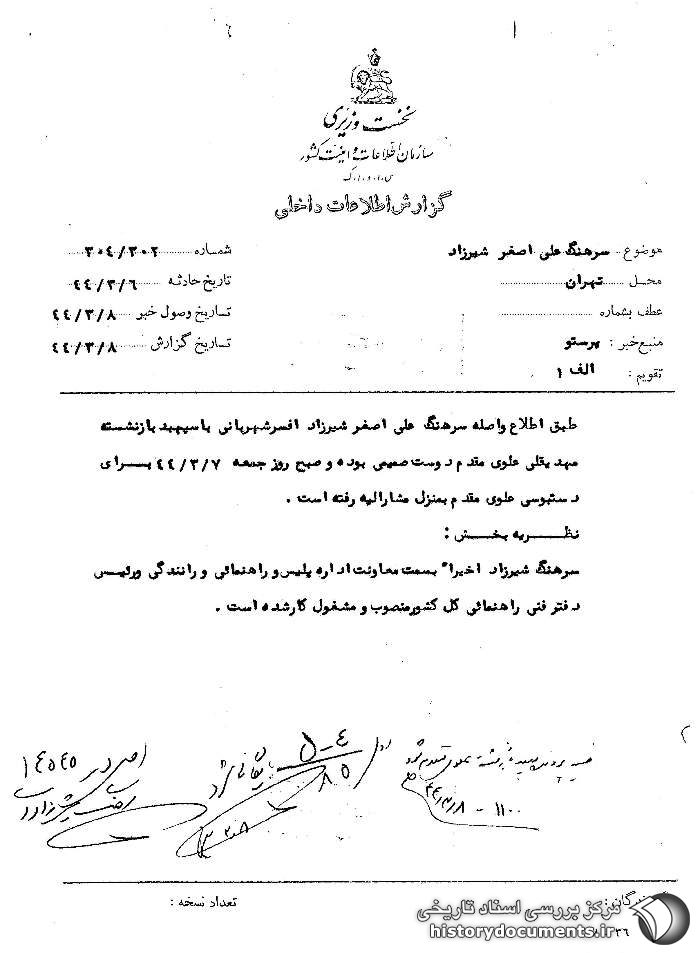 نخست وزیری
سازمان اطلاعات و امنیت کشور
س.ا.و.ا.ک
گزارش اطلاعات داخلی
موضوع سرهنگ علی اصغر شیرزاد
شماره ۳۰۴/۳۰۲
محل تهران
تاریخ حادثه ۴۴/۳/۶
عطف بشماره
تاریخ وصول خبر ۴۴/۳/۸
منبع خبر : پرستو
تاریخ گزارش ۴۴/۳/۸
تقویم : الف ۱
طبق اطلاع واصله سرهنگ علی اصغر شیرزاد افسر شهربانی با سپهبد بازنشسته
مهدیقلی علوی مقدم دوست صمیمی بوده و صبح روز جمعه ۴۴/۳/۷ برای
دستبوسی علوی مقدم بمنزل مشارالیه رفته است .
نظریه بخش :
سرهنگ شیرزاد اخیراً بسمت معاونت اداره پلیس و راهنمائی و رانندگی ورئیس
دفتر فنی راهنمائی کل کشور منصوب و مشغول کار شده است .
اصل در ۱۴۵۴۵
بایگانی شود
۴۴/۳/۸ - ۱۱۰۰
گیرندگان :
تعداد نسخه :
مرکز بررسی اسناد تاریخی
historydocuments.ir